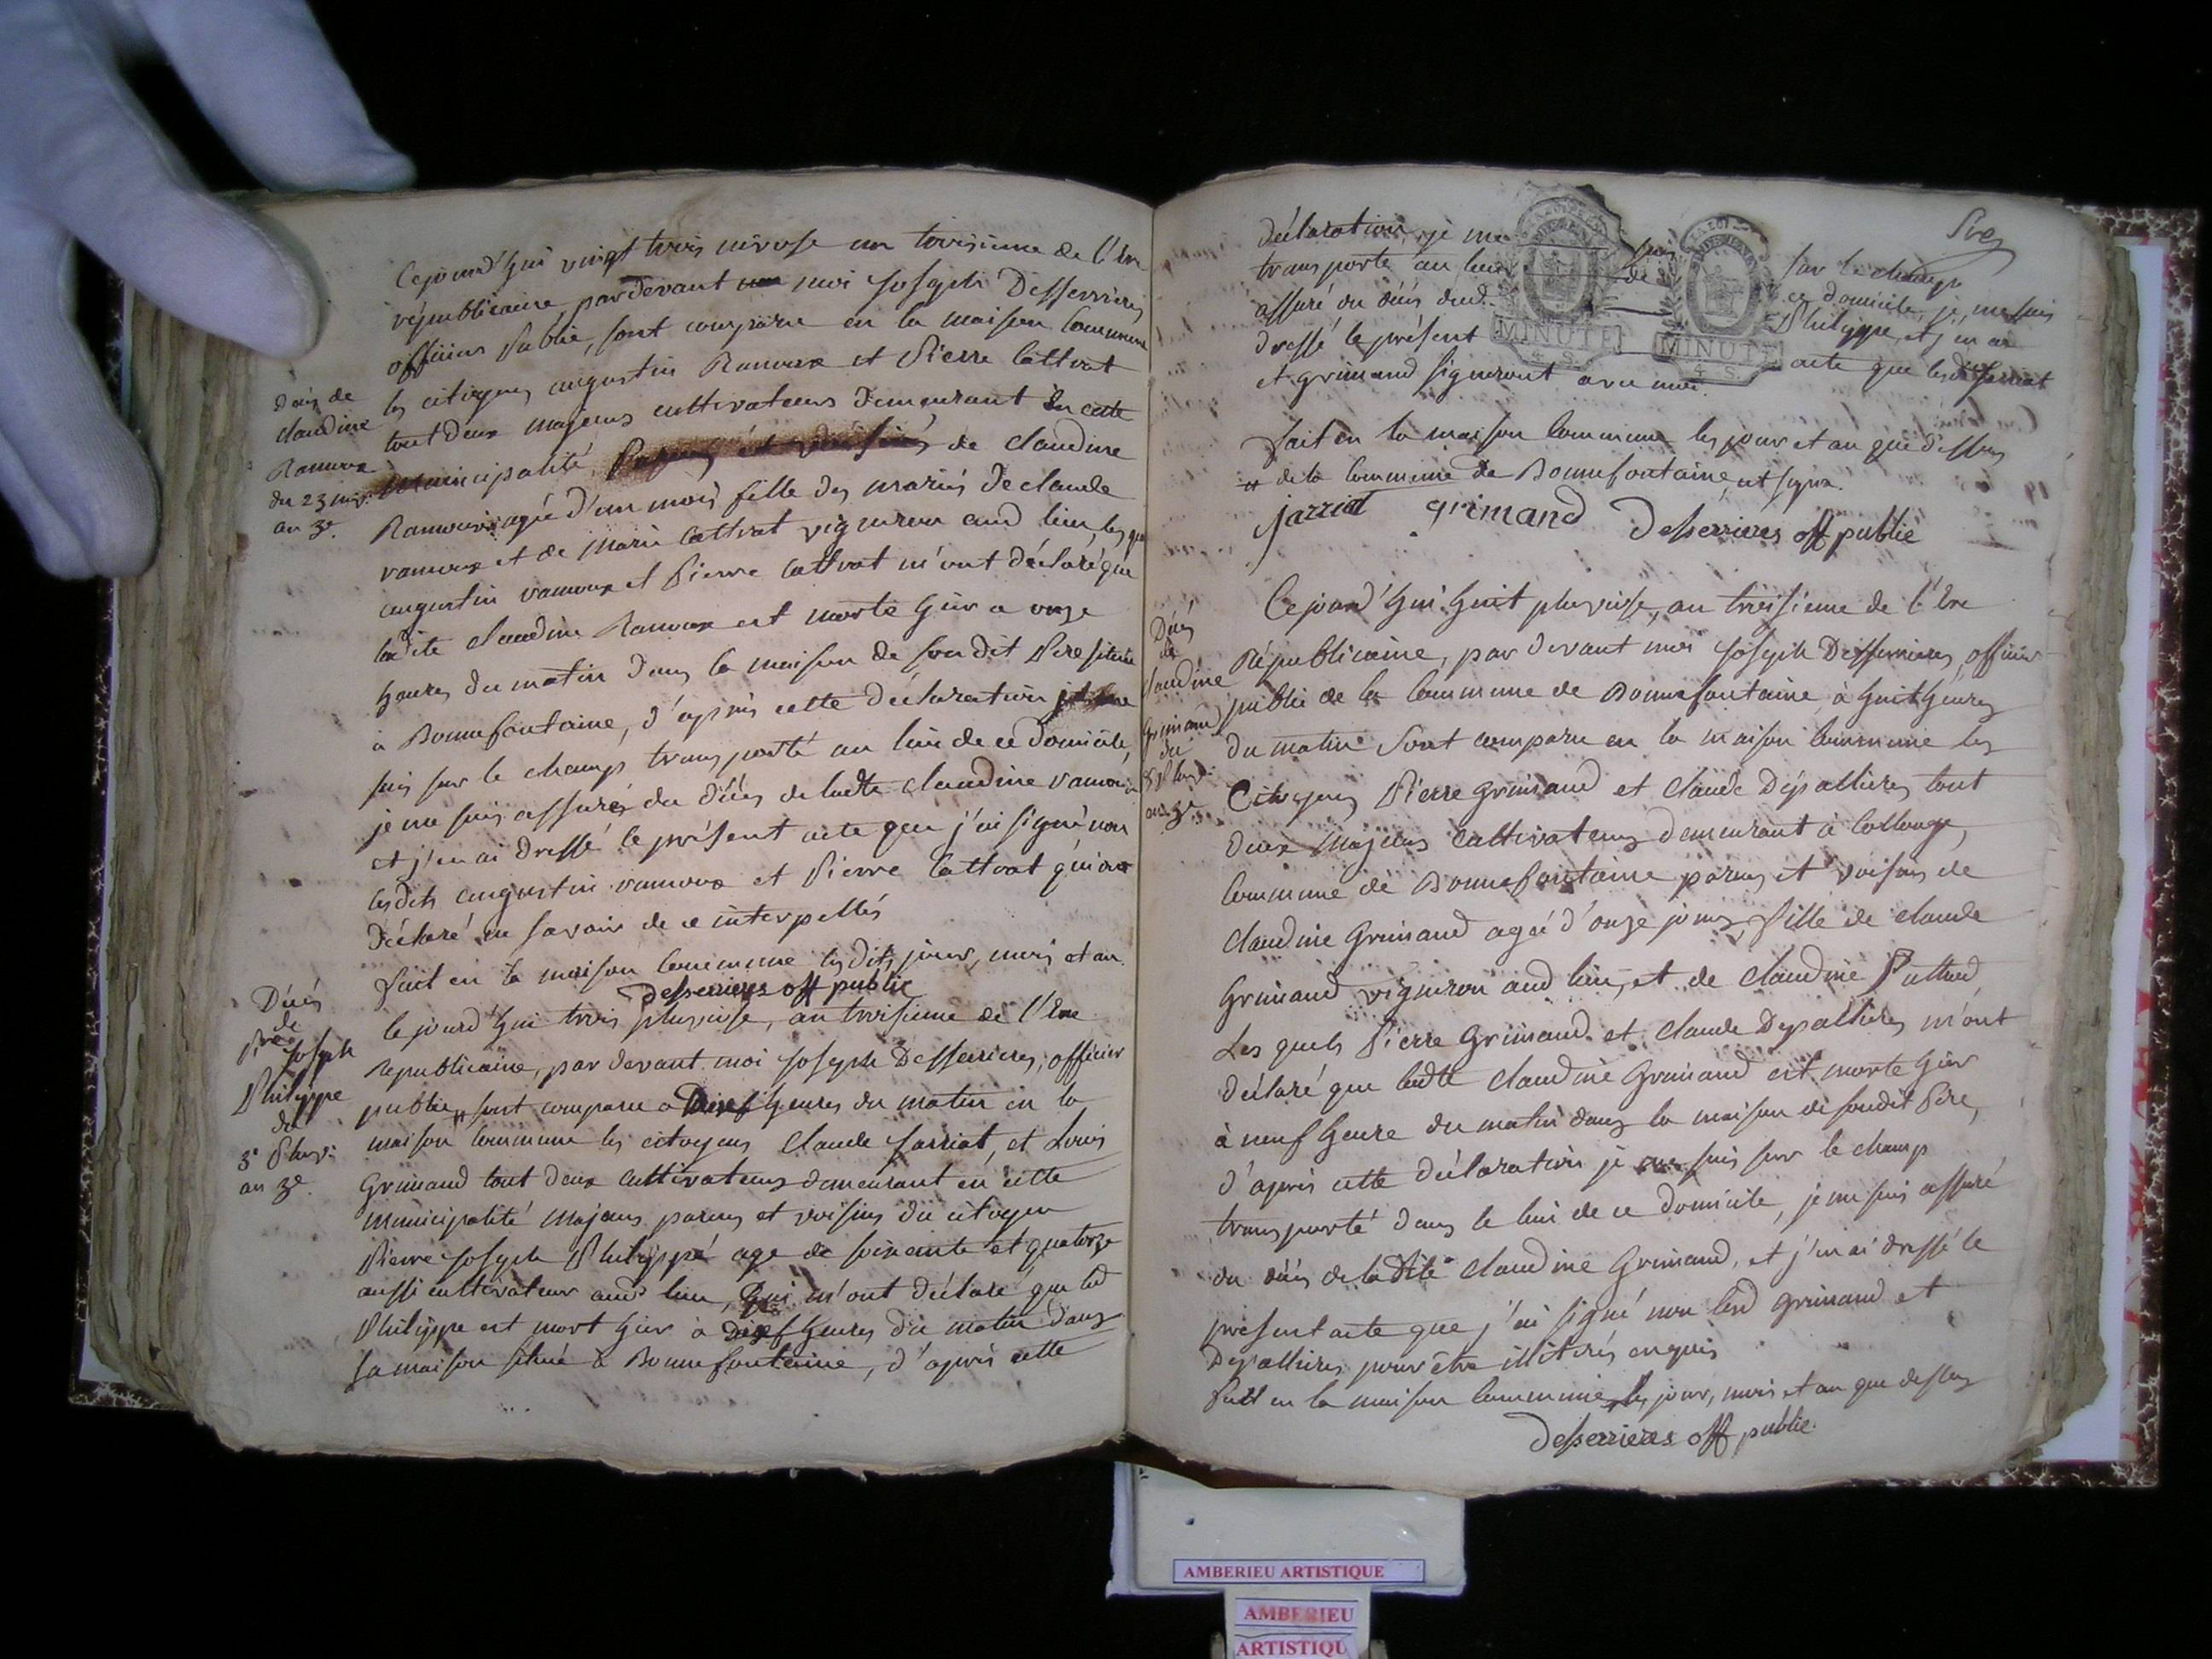 Cejourd'hui vingt trois nivose an troisieme de l'Ere
républicaine, pardevant moi Joseph Desserrieres
officier Public, sont comparu en la maison commune
les citoyens augustin Ramoux et Pierre Cattrat
tout deux majeurs cultivateurs demeurant en cette
municipalité Parens et voisins de claudine
Ramoux agée d'un mois fille des mariés De claude
ramoux et de Marie Cattrat vigneron aud lieu, lesq
augustin ramoux et Pierre Cattrat m'ont déclaré que
ladite claudine Ramoux est morte hier a onze
heures du matin dans la maison de son dit Pere située
à Bonnefontaine, d'après cette déclaration je me
suis sur le champ transporté au lieu de ce domicile,
je me suis assuré du décés de ladte claudine ramoux
et j'en ai dressé le présent acte que j'ai signé non
lesdits augustin ramoux et Pierre Cattrat qui ont
déclaré ne savoir de ce interpellés
Fait en la maison commune lesdits jour, mois et an
desserrieres off public
Décés de
claudine
Ramoux
du 23 niv.
an 3e.
Cejourd'hui trois pluviose, an troisieme de l'Ere
republicaine, par devant moi Joseph Desserrieres, officier
public, sont comparu a heures du matin en la
maison commune les citoyens Claude Jarriat, et Louis
Grimand tout deux cultivateurs demeurant en cette
municipalité majeurs parens et voisins du citoyen
Pierre Joseph Philippe age de soixante et quatorze
aussi cultivateur aud lieu, Qui m'ont déclaré que led
Philippe est mort hier à heures du matin dans
sa maison située à Bonnefontaine, d'après cette
Décés
de
Pre
Joseph
Philippe
du
3e Pluv:
an 3e.
déclaration, je me suis sur le champ
transporté au lieu de ce domicile, je me suis
assuré du décés dud. Philippe, et j'en ai
dressé le présent acte que lesdits Jarriat
et grimand signeront avec moi.
MINUTE
4 S.
MINUTE
4 S.
Fait en la maison commune les jour et an que dessus
de la commune de Bonnefontaine et signé.
jarriat grimand desserrieres off public
Cejourd'hui huit pluviose, an troisieme de l'Ere
Républicaine, par devant moi Joseph Desserrieres, officier
public de la commune de Bonnefontaine à huit heures
du matin Sont comparu en la maison commune les
Citoyens Pierre Grimand et claude Dépallieres tout
deux majeurs cultivateurs demeurant à Collonge,
commune de Bonnefontaine parens et voisins de
claudine Grimand agée d'onze jours, fille de claude
Grimand vigneron aud lieu, et de claudine
Les quels Pierre Grimand et claude Depallieres m'ont
déclaré que ladte claudine Grimand est morte hier
à neuf heure du matin dans la maison de sondit Pere,
d'après cette déclaration je me suis sur le champ
transporté dans le lieu de ce domicile, je me suis assuré
du décés de ladite claudine Grimand, et j'en ai dressé le
présent acte que j'ai signé non lesd grimand et
Depallieres pour être illitérés enquis
Fait en la maison commune, les jour, mois et an que dessus
desserrieres off public.
Décés
de
Claudine
Grimand
du
8 Pluv:
an 3e.
AMBERIEU ARTISTIQUE
AMBERIEU
ARTISTIQU